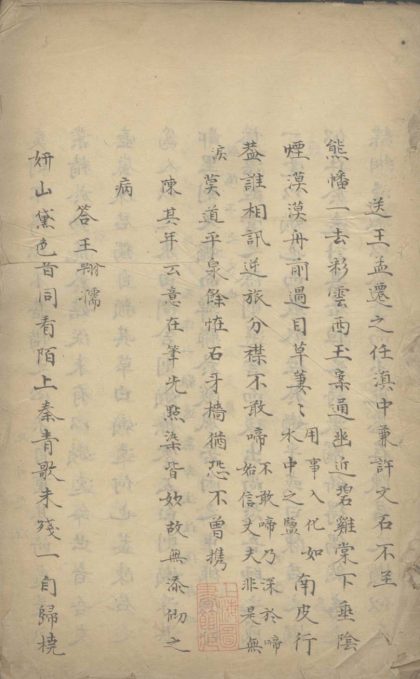 送王孟遷之任滇中兼許文石不至
熊幡一去彩雲西王案通幽近碧雞棠下垂陰
煙漠漠舟前過目草萋〻用事入化如水中之鹽南皮行
蓋誰相訊逆旅分襟不敢啼不敢啼乃深於啼始信丈夫非是無
淚莫道平泉餘怪石牙檣猶恐不曾攜
陳其年云意在筆先點染皆妙故無添之
病
答王翰孺
妍山黛色昔同看陌上秦青歌未殘一自歸橈